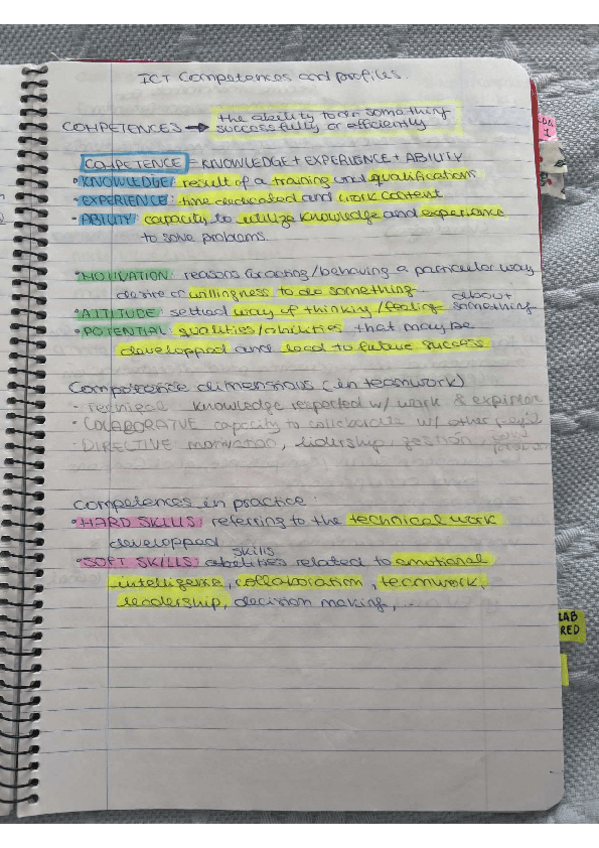 ICT Competences and profiles.
COMPETENCES → the ability to do something
successfully or efficiently
COMPETENCE = KNOWLEDGE + EXPERIENCE + ABILITY
• KNOWLEDGE: result of a training and qualifications
• EXPERIENCE: time dedicated and work content
• ABILITY: capacity to utilize knowledge and experience
to solve problems.
• MOTIVATION: reasons for acting/behaving a particular way
desire or willingness to do something
• ATTITUDE: settled way of thinking/feeling about something
• POTENTIAL: qualities/abilities that may be
developped and lead to future success
Competence dimensions (in teamwork)
• Technical knowledge respected w/ work &
• COLABORATIVE capacity to collaborate w/ other
• DIRECTIVE motivation, lidership, gestion
Competences in practice:
• HARD SKILLS: referring to the technical work
developped skills
• SOFT SKILLS: abilities related to emotional
intelligence, collaboration, teamwork,
leadership, decision making, ...
LAB
RED